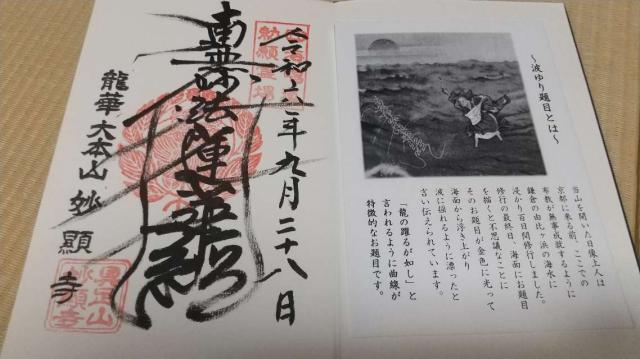 〜波ゆり題目とは〜
当山を開いた日像上人は
京都に来る前、ここでの
布教が無事成就するように
鎌倉の由比ヶ浜の海水に
浸かり百日間修行しました。
修行の最終日、海面にお題目
を描くと不思議なことに
そのお題目が金色に光って
海面から浮き上がり
波に揺れるように漂ったと
言い伝えられています。
「龍の躍るが如し」と
言われるように曲線が
特徴的なお題目です。
令和六年九月二十八日
勅願道場
南無妙法蓮華経
龍華大本山 妙顯寺
具足山
妙顯寺